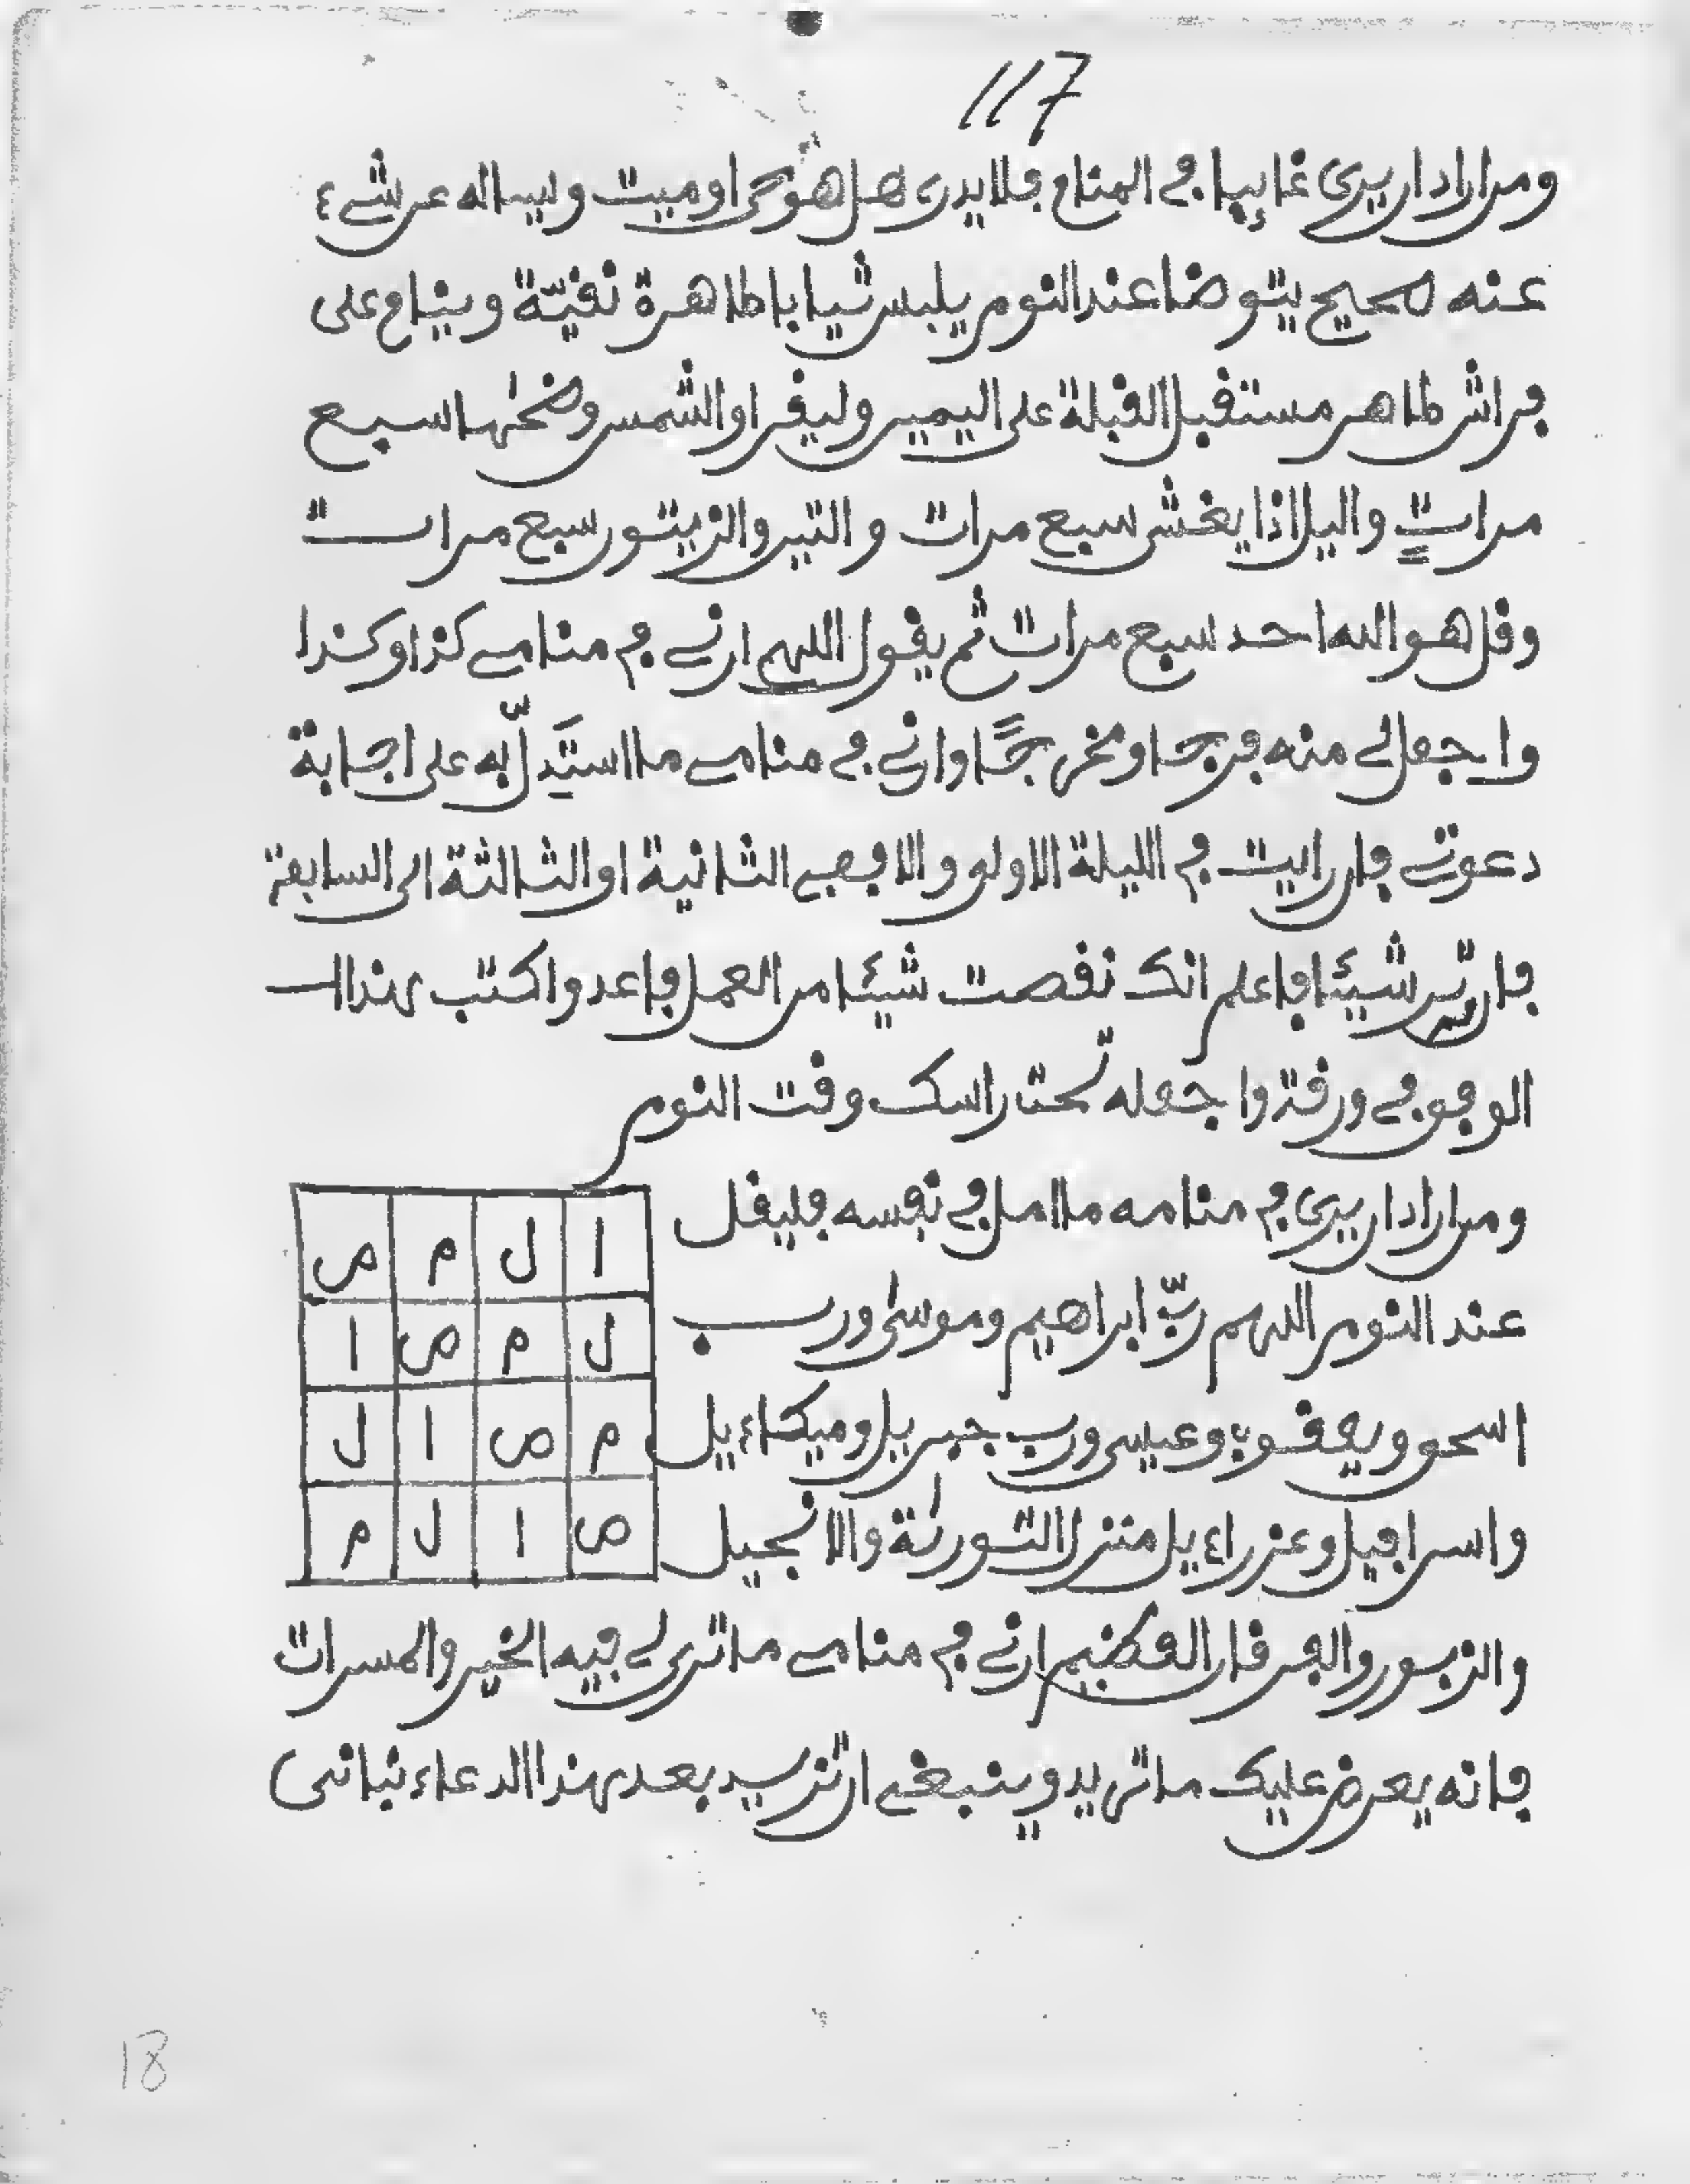 117
ومن اراد ان يرى غايبا في المنام فلا يدرى هل هو حي او ميت ويساله عن شيء
عنه صحيح يتوضا عند النوم يلبس ثيابا طاهرة نقيّة وينام على
فراش طاهر مستقبل القبلة على اليمين وليقرا والشمس وضحىها سبع
مراتٍ واليل اذا يغشى سبع مرات والتين والزيتون سبع مرات
وقل هو الله احد سبع مرات ثم يقول اللهم ارني في منامي كذا وكذا
واجعل لي منه فرجا ومخرجًا وارني في منامي ما استَدِلّ به على اجابة
دعوتي فان رايت في الليلة الاولى والا ففي الثانية او الثالثة الى السابعة
فان لم تر شيئا فاعلم انك نقصت شيئا من العمل فاعد واكتب هذا ال
الوفق في ورقة واجعله تحت راسك وقت النوم
ومن اراد ان يرى في منامه ما امل في نفسه فليقل
عند النوم اللهم ربّ ابراهيم وموسى ورب
اسحق ويعقوب وعيسى ورب جبريل وميكاءيل
واسرافيل وعزراءيل منزل التورىة والانجيل
والزبور والفرقان العظيم ارني في منامي ما ترى لي فيه الخير والمسرات
فانه يعرض عليك ما تريد وينبغي ان تزيد بعد هذا الدعاء نباتى
ا ل م ص
ل م ص ا
م ص ا ل
ص ا ل م
18